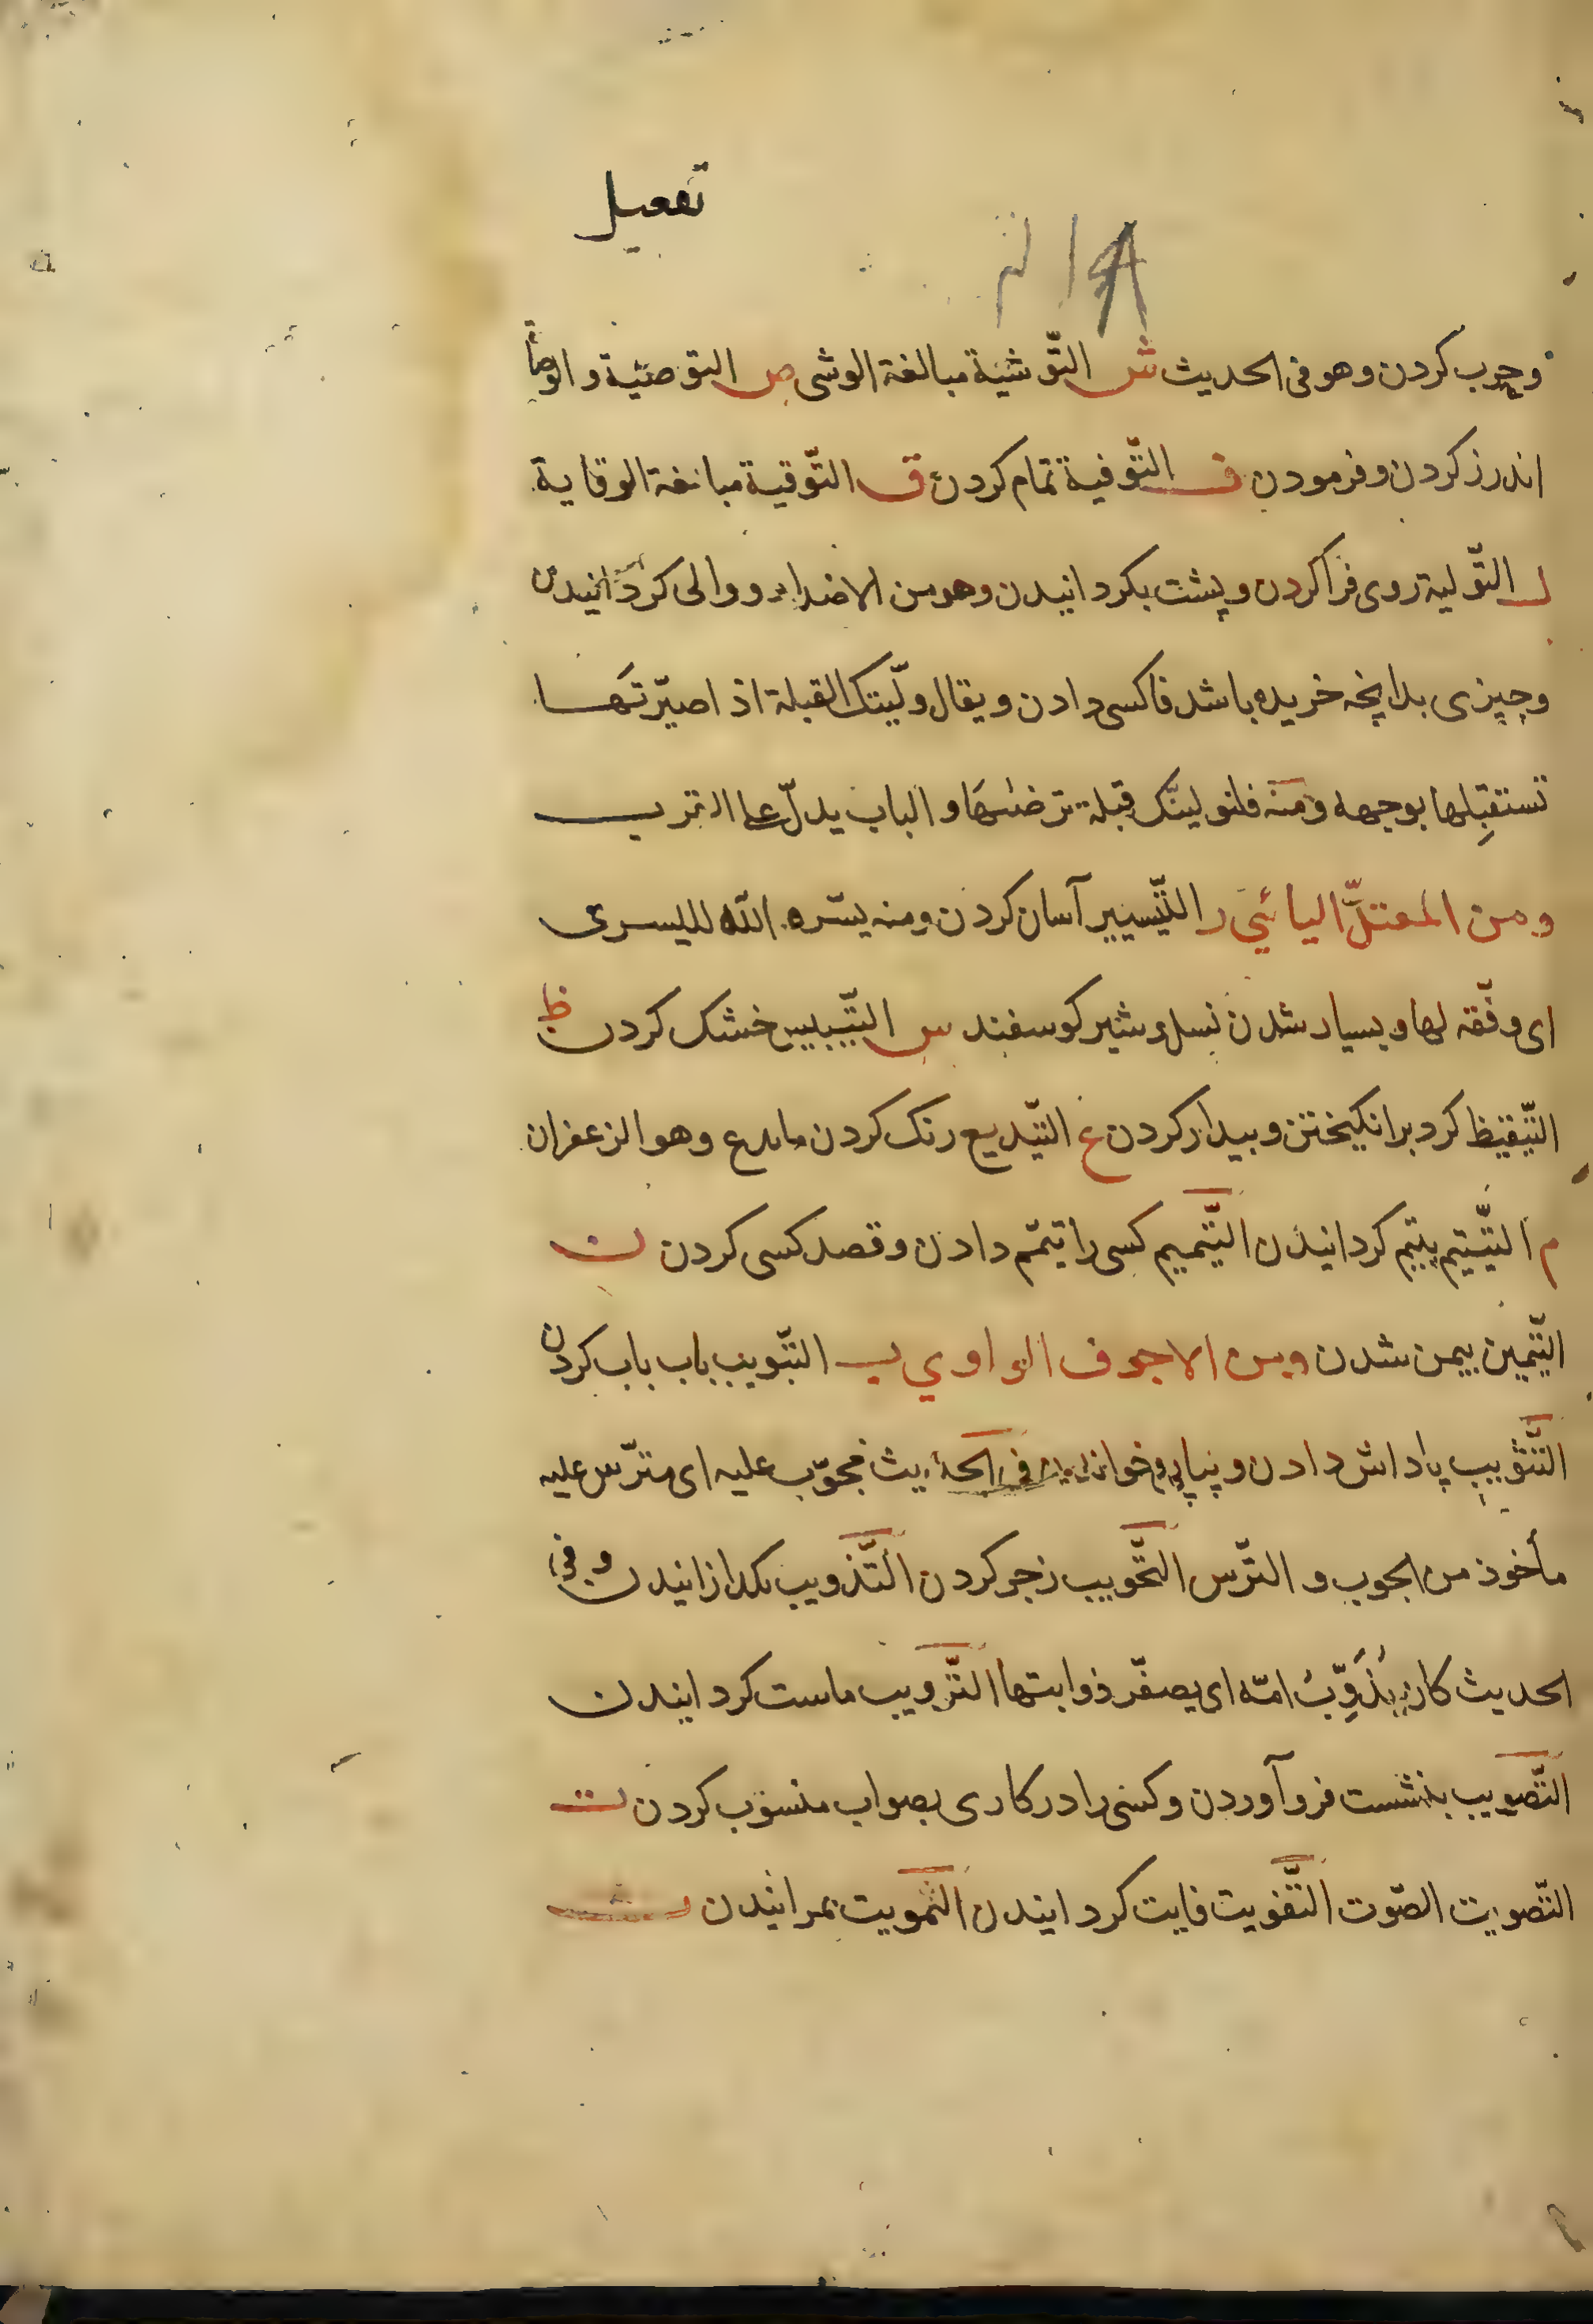 تفعیل
وچرب کردن وهو فی الحدیث ش التّوشیة مبالغة الوشی ص التوصیة والوصاة
اندرز کردن و فرمودن ف التّوفیة تمام کردن ق التّوقیة مبالغة الوقایة
ل التّولیة روی فرا کردن و پشت بکردانیدن وهو من الاضداد و والی کردانیدن
وچیزی بدانچه خریده باشد فاکسی دادن ویقال ولّیتک القبلة اذا صیّرتَها
تستقبِلها بوجهه ومنه فلنولینّک قبلة ترضٰها والباب یدلّ علی القرب
ومن المعتلّ الیائی ر التّیسیر آسان کردن ومنه یسّره الله للیسری
ای وفّقه لها وبسیار شدن نسل و شیر کوسفند س التّیبیس خشک کردن ظ
التّیقیظ کرد برانکیختن وبیدار کردن ع التّیدیع رنک کردن بایدع وهو الزعفران
م التّیتیم یتیم کردانیدن التّیمیم کسی را تیمّم دادن وقصد کسی کردن ن
التّیمین بیمن شدن ومن الاجوف الواوی ب التّبویب باب باب کردن
التّثویب پاداش دادن و فی الحدیث فمجوّب علیه ای مترّس علیه
مأخوذ من الجوب و الترّس التّحویب زجر کردن التّذویب بکدازانیدن وفی
الحدیث کان یُذَوِّبُ امّه ای یضفّر ذوابتها التّرویب ماست کردانیدن
التّصویب بنشست فروآوردن وکسی را در کاری بصواب منسوب کردن ت
التّصویت الصّوت التّفویت فایت کردانیدن التّمویت بمرانیدن ث